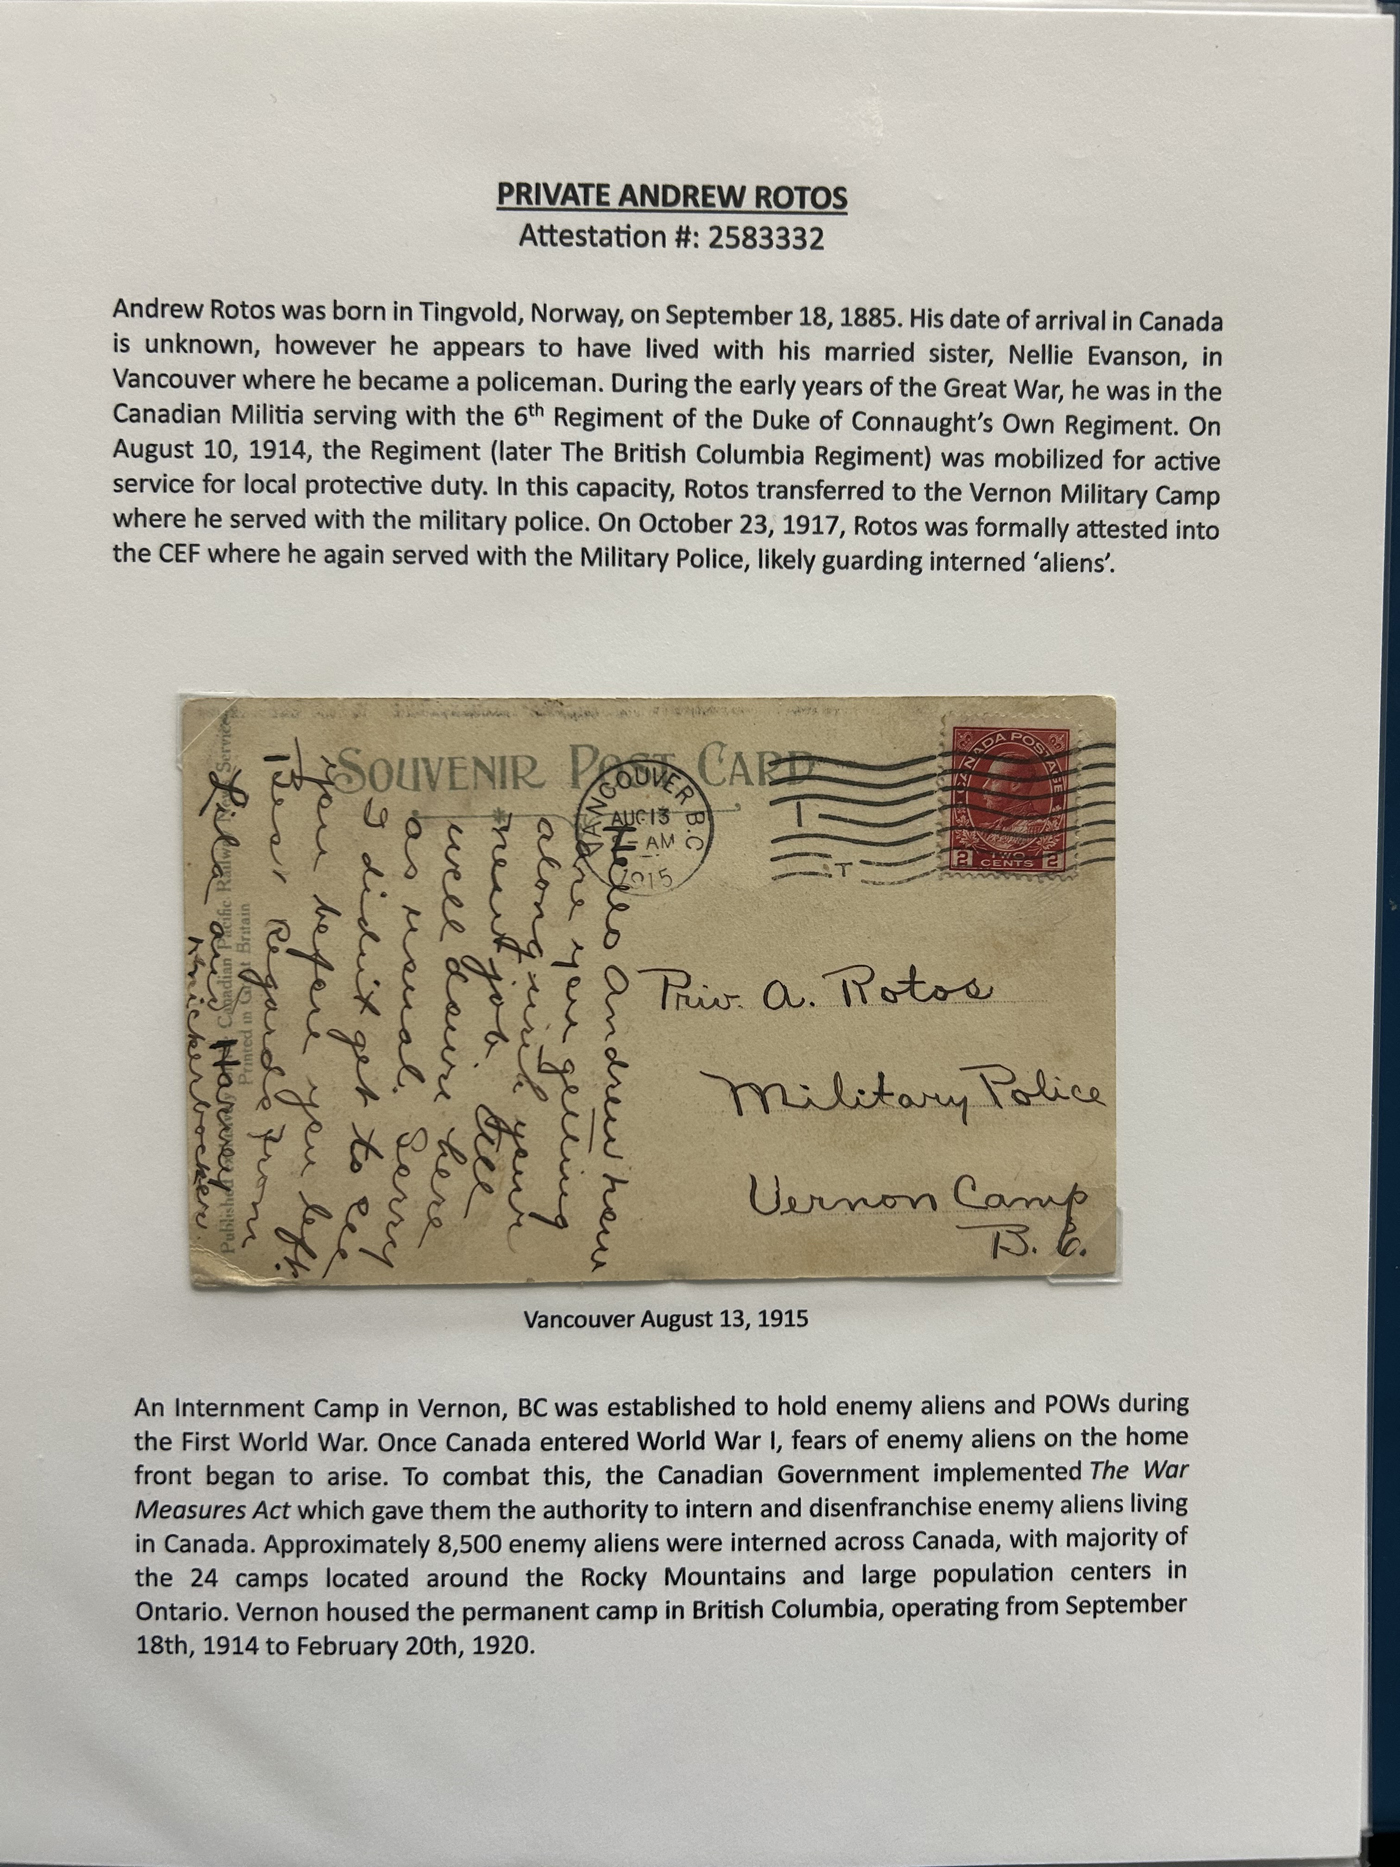 PRIVATE ANDREW ROTOS
Attestation #: 2583332
Andrew Rotos was born in Tingvold, Norway, on September 18, 1885. His date of arrival in Canada
is unknown, however he appears to have lived with his married sister, Nellie Evanson, in
Vancouver where he became a policeman. During the early years of the Great War, he was in the
Canadian Militia serving with the 6th Regiment of the Duke of Connaught's Own Regiment. On
August 10, 1914, the Regiment (later The British Columbia Regiment) was mobilized for active
service for local protective duty. In this capacity, Rotos transferred to the Vernon Military Camp
where he served with the military police. On October 23, 1917, Rotos was formally attested into
the CEF where he again served with the Military Police, likely guarding interned 'aliens'.
SOUVENIR POST CARD
VANCOUVER B.C
AUG 13
AM
1915
CANADA POSTAGE
2 TWO CENTS 2
Hello Andrew how
are you getting
along with your
new job. All
well down here
as usual. Sorry
I didn't get to see
you before you left.
Best Regards from
Lila and Harvey
Knickerbocker.
Published Canadian Pacific Railway News Service
Printed in Great Britain
Priv. A. Rotos
Military Police
Vernon Camp
B.C.
Vancouver August 13, 1915
An Internment Camp in Vernon, BC was established to hold enemy aliens and POWs during
the First World War. Once Canada entered World War I, fears of enemy aliens on the home
front began to arise. To combat this, the Canadian Government implemented The War
Measures Act which gave them the authority to intern and disenfranchise enemy aliens living
in Canada. Approximately 8,500 enemy aliens were interned across Canada, with majority of
the 24 camps located around the Rocky Mountains and large population centers in
Ontario. Vernon housed the permanent camp in British Columbia, operating from September
18th, 1914 to February 20th, 1920.